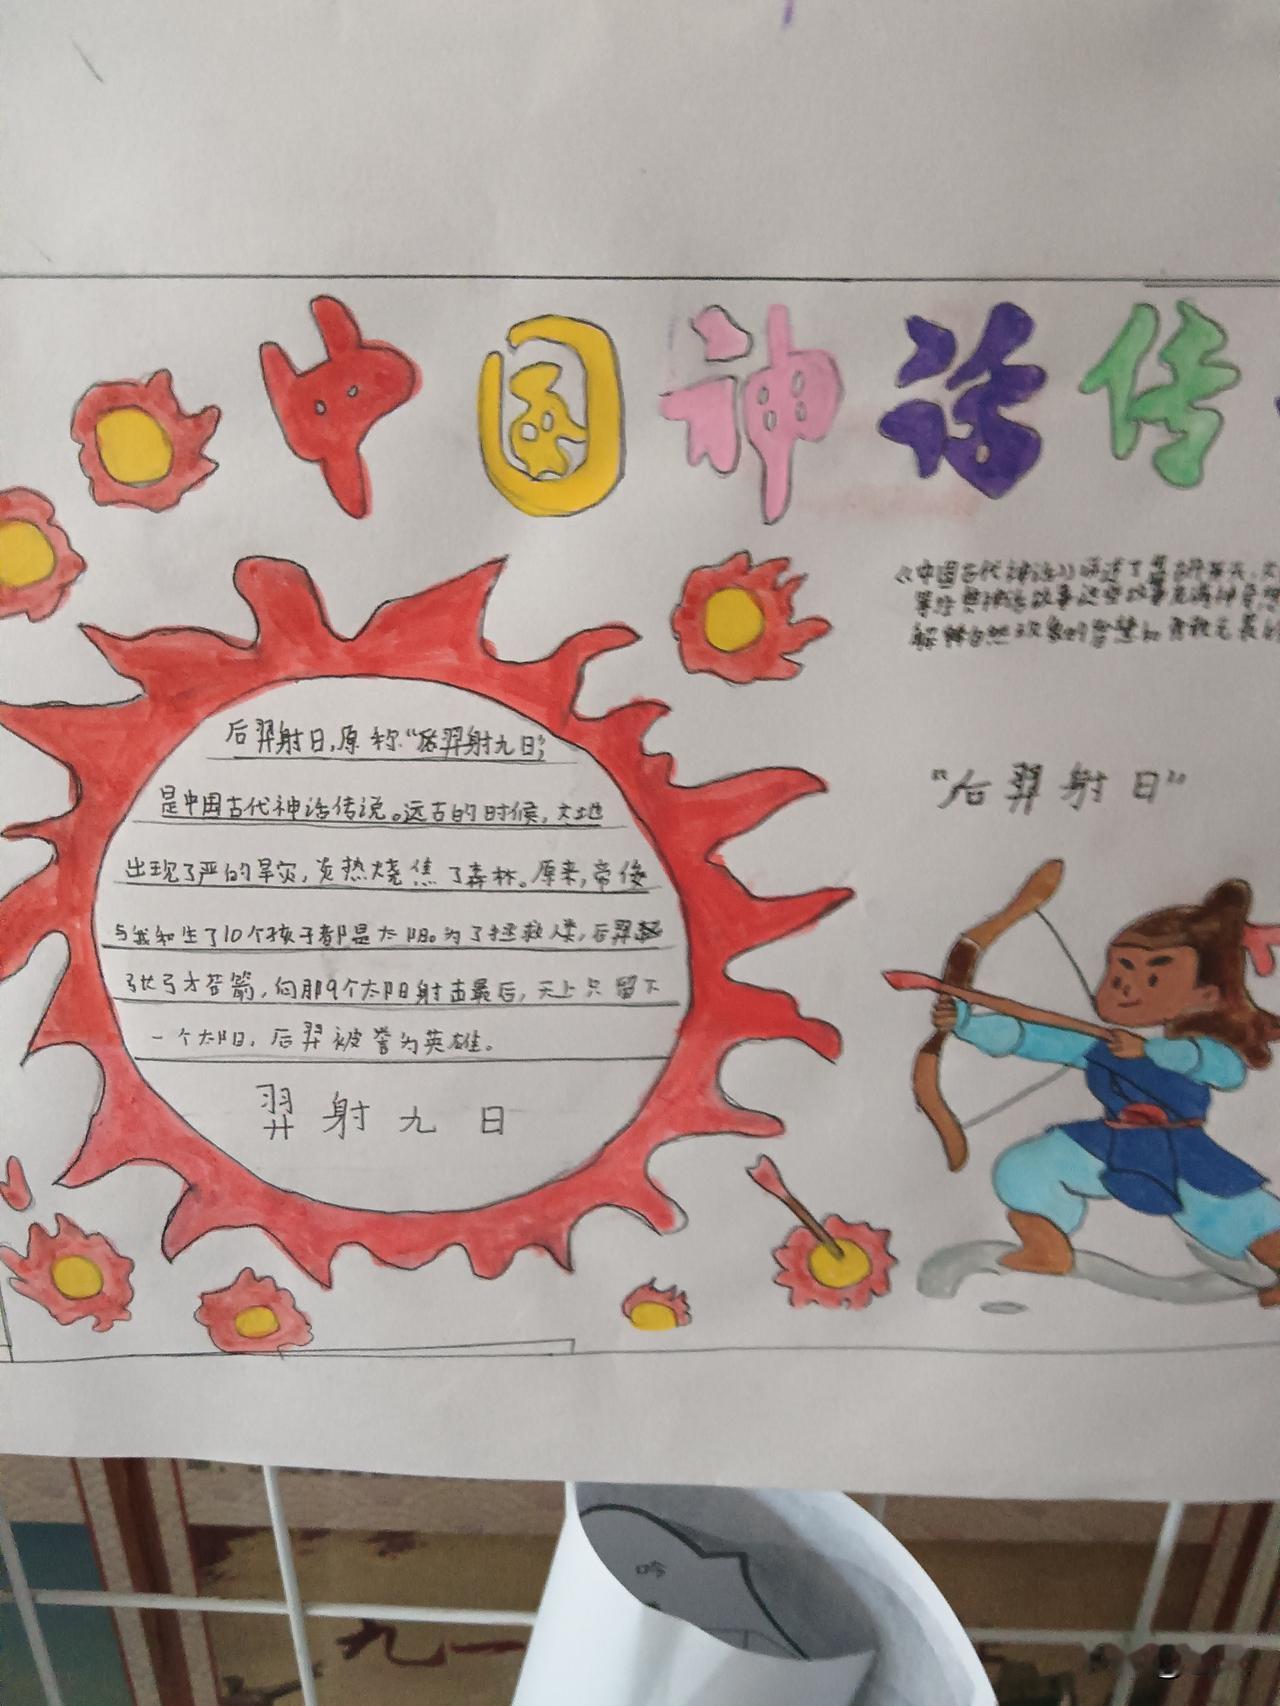 中国神话传
《中国古代神话》讲述了
解释自然现象的
后羿射日,原称“后羿射九日”,
是中国古代神话传说。远古的时候,大地
出现了严的旱灾,炎热烧焦了森林。原来,帝俊
与羲和生了10个孩子都是太阳。为了拯救人类,后羿
张弓才答箭,向那9个太阳射击最后,天上只留下
一个太阳,后羿被誉为英雄。
羿射九日
“后羿射日”
吟
九一